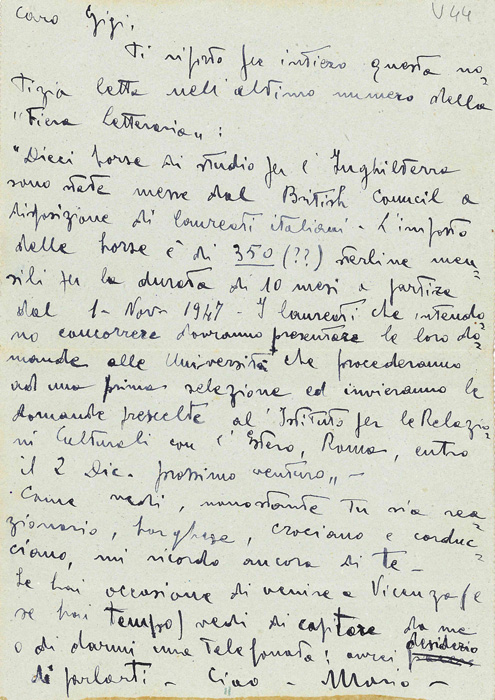 V44
Caro Gigi,
Ti riporto per intiero questa no=
tizia letta nell'ultimo numero della
"Fiera letteraria„:
"Dieci borse di studio per l'Inghilterra
sono state messe dal British Council a
disposizione di laureati italiani - L'importo
delle borse è di 350 (??) sterline men=
sili per la durata di 10 mesi a partire
dal 1- Nov. 1947 - I laureati che intendo=
no concorrere dovranno presentare le loro do=
mande alle Università che procederanno
ad una prima selezione ed invieranno le
domande prescelte al'Istituto per le Relazio=
ni Culturali con l'Estero, Roma, entro
il 2 Dic. prossimo venturo„ -
Come vedi, nonostante tu sia rea=
zionario, borghese, crociano e carduc=
ciano, mi ricordo ancora di te -
Se hai occasione di venire a Vicenza (e
se hai tempo) vedi di capitare da me
o di darmi una telefonata: avrei desiderio
di parlarti - Ciao - Mario -